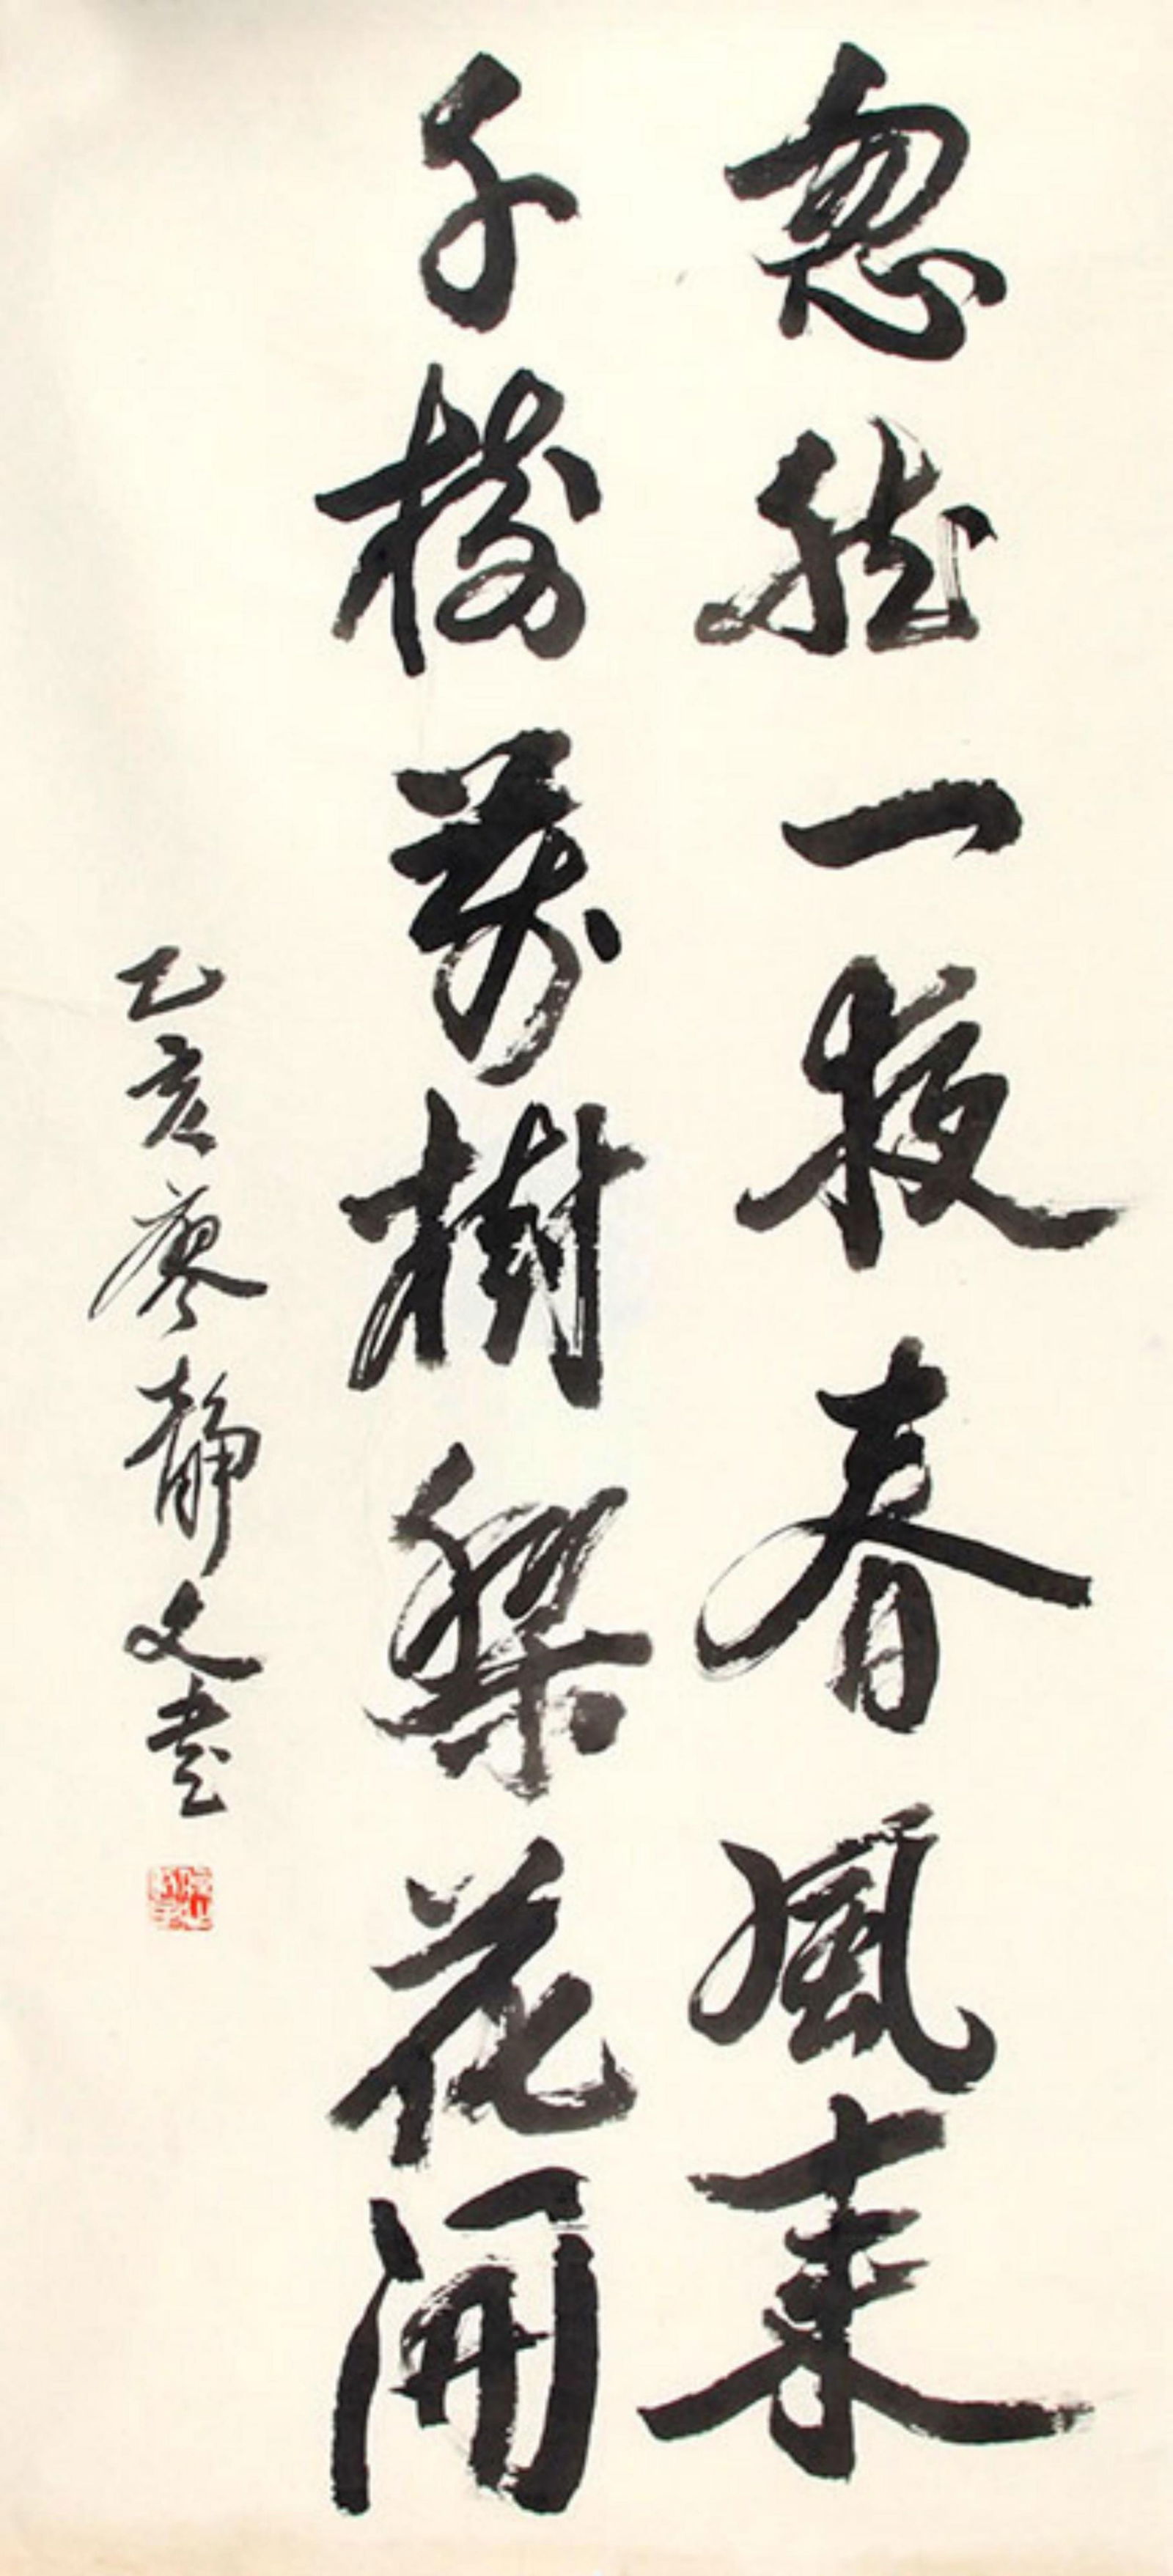 忽然一夜春風來
千樹萬樹梨花開
乙亥廖靜文書